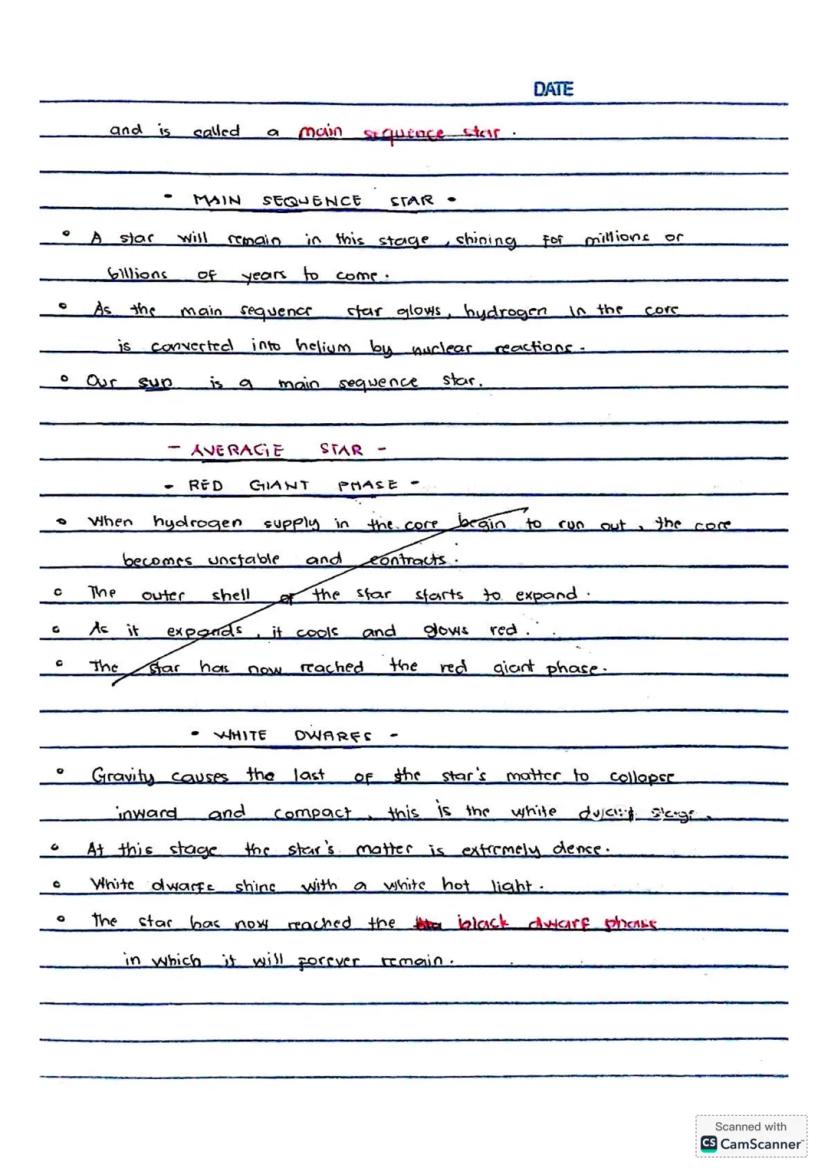 DATE
and is called a main sequence star.
- MAIN SEQUENCE STAR -
• A star will remain in this stage, shining for millions or
billions of years to come.
• As the main sequence star glows, hydrogen in the core
is converted into helium by nuclear reactions.
• Our sun is a main sequence star.
- AVERAGE STAR -
- RED GIANT PHASE -
• When hydrogen supply in the core begin to run out, the core
becomes unstable and contracts.
• The outer shell of the star starts to expand.
• As it expands, it cools and glows red.
• The star has now reached the red giant phase.
- WHITE DWARFS -
• Gravity causes the last of the star's matter to collapse
inward and compact, this is the white dwarf stage.
• At this stage the star's matter is extremely dense.
• White dwarfs shine with a white hot light.
• The star has now reached the black dwarf phase
in which it will forever remain.
Scanned with
CS CamScanner